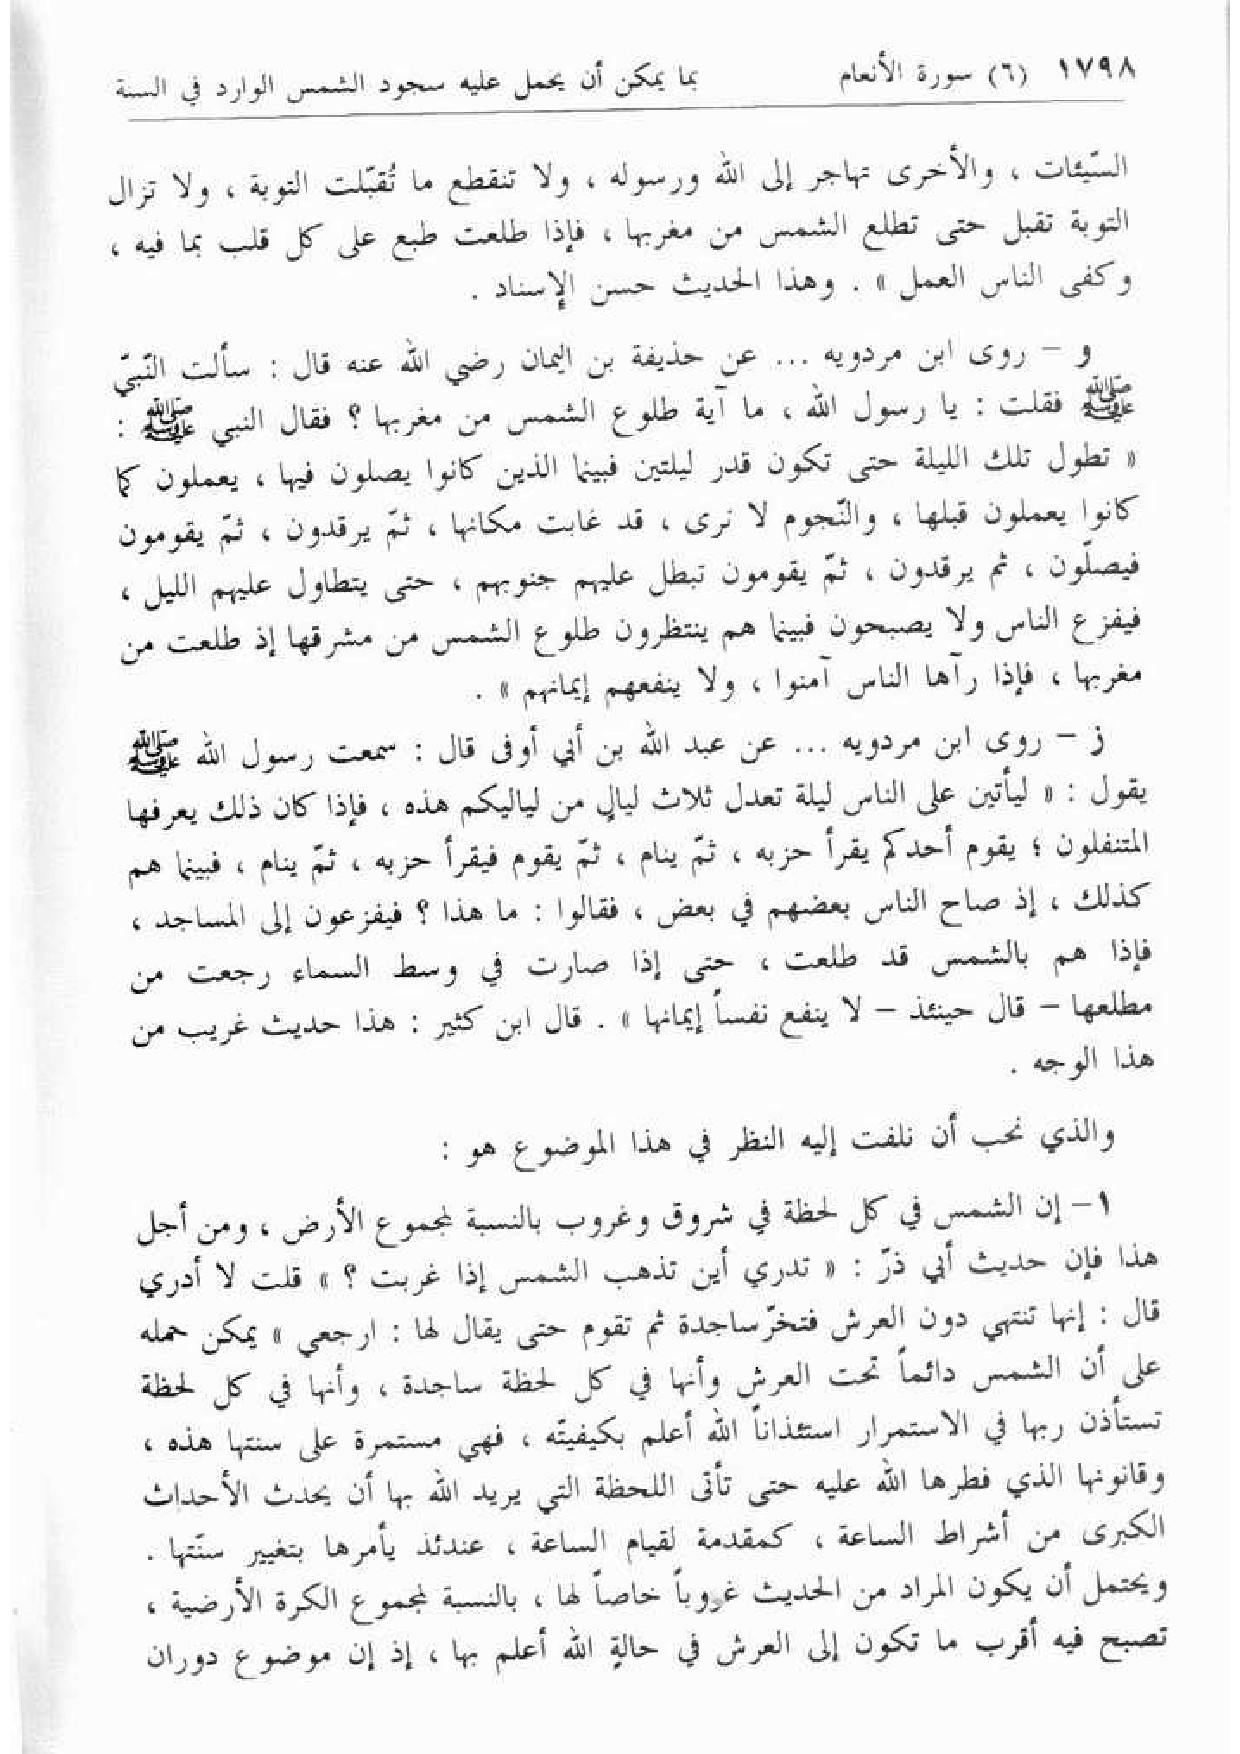 ١٧٩٨ (٦) سورة الأنعام بما يمكن أن يحمل عليه سجود الشمس الوارد في السنة
السّيئات ، والأخرى تهاجر إلى الله ورسوله ، ولا تنقطع ما تُقبّلت التوبة ، ولا تزال
التوبة تقبل حتى تطلع الشمس من مغربها ، فإذا طلعت طبع على كل قلب بما فيه ،
وكفى الناس العمل » . وهذا الحديث حسن الإسناد .
و – روى ابن مردويه ... عن حذيفة بن اليمان رضي الله عنه قال : سألت النّبيّ
ﷺ فقلت : يا رسول الله ، ما آية طلوع الشمس من مغربها ؟ فقال النبي ﷺ :
« تطول تلك الليلة حتى تكون قدر ليلتين فبينما الذين كانوا يصلون فيها ، يعملون كما
كانوا يعملون قبلها ، والنّجوم لا نرى ، قد غابت مكانها ، ثمّ يرقدون ، ثمّ يقومون
فيصلّون ، ثم يرقدون ، ثمّ يقومون تبطل عليهم جنوبهم ، حتى يتطاول عليهم الليل ،
فيفزع الناس ولا يصبحون فبينما هم ينتظرون طلوع الشمس من مشرقها إذ طلعت من
مغربها ، فإذا رآها الناس آمنوا ، ولا ينفعهم إيمانهم » .
ز – روى ابن مردويه ... عن عبد الله بن أبي أوفى قال : سمعت رسول الله ﷺ
يقول : « ليأتين على الناس ليلة تعدل ثلاث ليالٍ من لياليكم هذه ، فإذا كان ذلك يعرفها
المتنفلون ؛ يقوم أحدكم يقرأ حزبه ، ثمّ ينام ، ثمّ يقوم فيقرأ حزبه ، ثمّ ينام ، فبينما هم
كذلك ، إذ صاح الناس بعضهم في بعض ، فقالوا : ما هذا ؟ فيفزعون إلى المساجد ،
فإذا هم بالشمس قد طلعت ، حتى إذا صارت في وسط السماء رجعت من
مطلعها – قال حينئذ – لا ينفع نفساً إيمانها » . قال ابن كثير : هذا حديث غريب من
هذا الوجه .
والذي نحب أن نلفت إليه النظر في هذا الموضوع هو :
١– إن الشمس في كل لحظة في شروق وغروب بالنسبة لمجموع الأرض ، ومن أجل
هذا فإن حديث أبي ذرّ : « تدري أين تذهب الشمس إذا غربت ؟ » قلت لا أدري
قال : إنها تنتهي دون العرش فتخرّ ساجدة ثم تقوم حتى يقال لها : ارجعي » يمكن حمله
على أن الشمس دائماً تحت العرش وأنها في كل لحظة ساجدة ، وأنها في كل لحظة
تستأذن ربها في الاستمرار استئذاناً الله أعلم بكيفيّته ، فهي مستمرة على سنتها هذه ،
وقانونها الذي فطرها الله عليه حتى تأتى اللحظة التي يريد الله بها أن يحدث الأحداث
الكبرى من أشراط الساعة ، كمقدمة لقيام الساعة ، عندئذ يأمرها بتغيير سنّتها .
ويحتمل أن يكون المراد من الحديث غروباً خاصاً لها ، بالنسبة لمجموع الكرة الأرضية ،
تصبح فيه أقرب ما تكون إلى العرش في حالةٍ الله أعلم بها ، إذ إن موضوع دوران